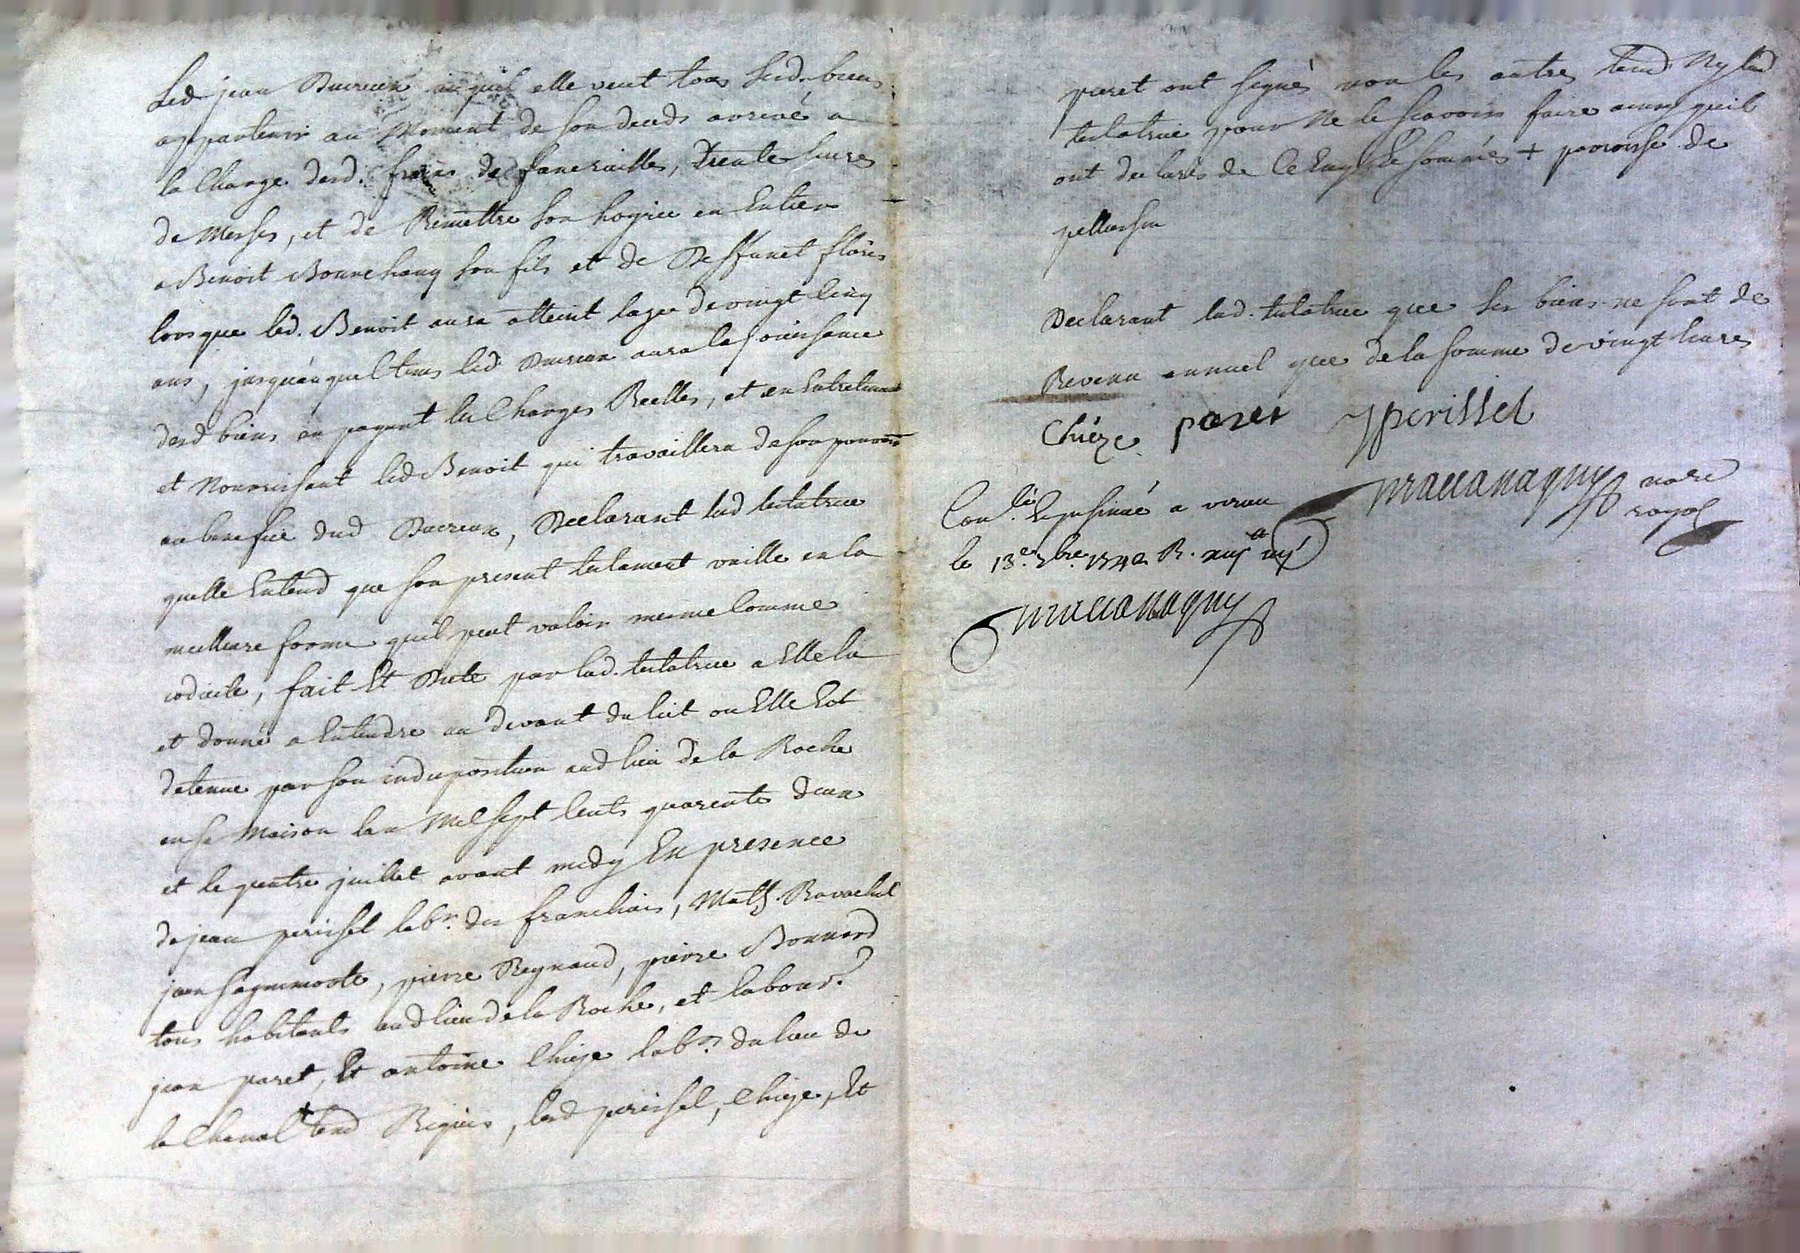 led jean Ducreux auquel elle veut tous sesd. biens
appartenir au moment de son deceds arrivé a
la charge desd. frais de funerailles, trente livres
de messes, et de Remettre son hoyrie en Entier
a Benoit Bonnehang son fils et de Deffunct floris
lorsque led. Benoit aura atteint lage de vingt cinq
ans, jusquauquel tems led Ducreux aura la jouissance
desd biens en payant les charges Reelles, et en Entretenant
et Nourrissant led Benoit qui travaillera de son pouvoir
au benefice dud Ducreux, Declarant lad testatrice
quelle Entend que son present testament vaille en la
meilleure forme quil peut valoir mesme comme
codicile, fait Et Dicté par lad. testatrice a Elle lû
et donné a Entendre au devant du lict ou Elle Est
detenue par son indisposition aud lieu de la Roche
en sa maison lan Mil sept cents quarente deux
et le quatre juillet avant midy En presence
de jean perissel labr. des franchais, Math. Ravachol
jean , pierre Reynaud, pierre Bonnard
tous habitants aud lieu de la Roche, et labour.
jean paret, Et antoine Chieze labr. du lieu de
la Cheval + temd Requis, led perissel, Chieze, Et
paret ont signés non les autres temd Ny lad
testatrice pour Ne le scavoir faire ainsy quils
ont declarés de ce Enquis Et sommés + paroisse de
pellussin
Declarant lad. testatrice que ses biens ne sont de
Revenu annuel que de la somme de vingt livres
Chieze paret J perissel
nore
royal
Con.lé a virieu
le 13.e 1742 R.